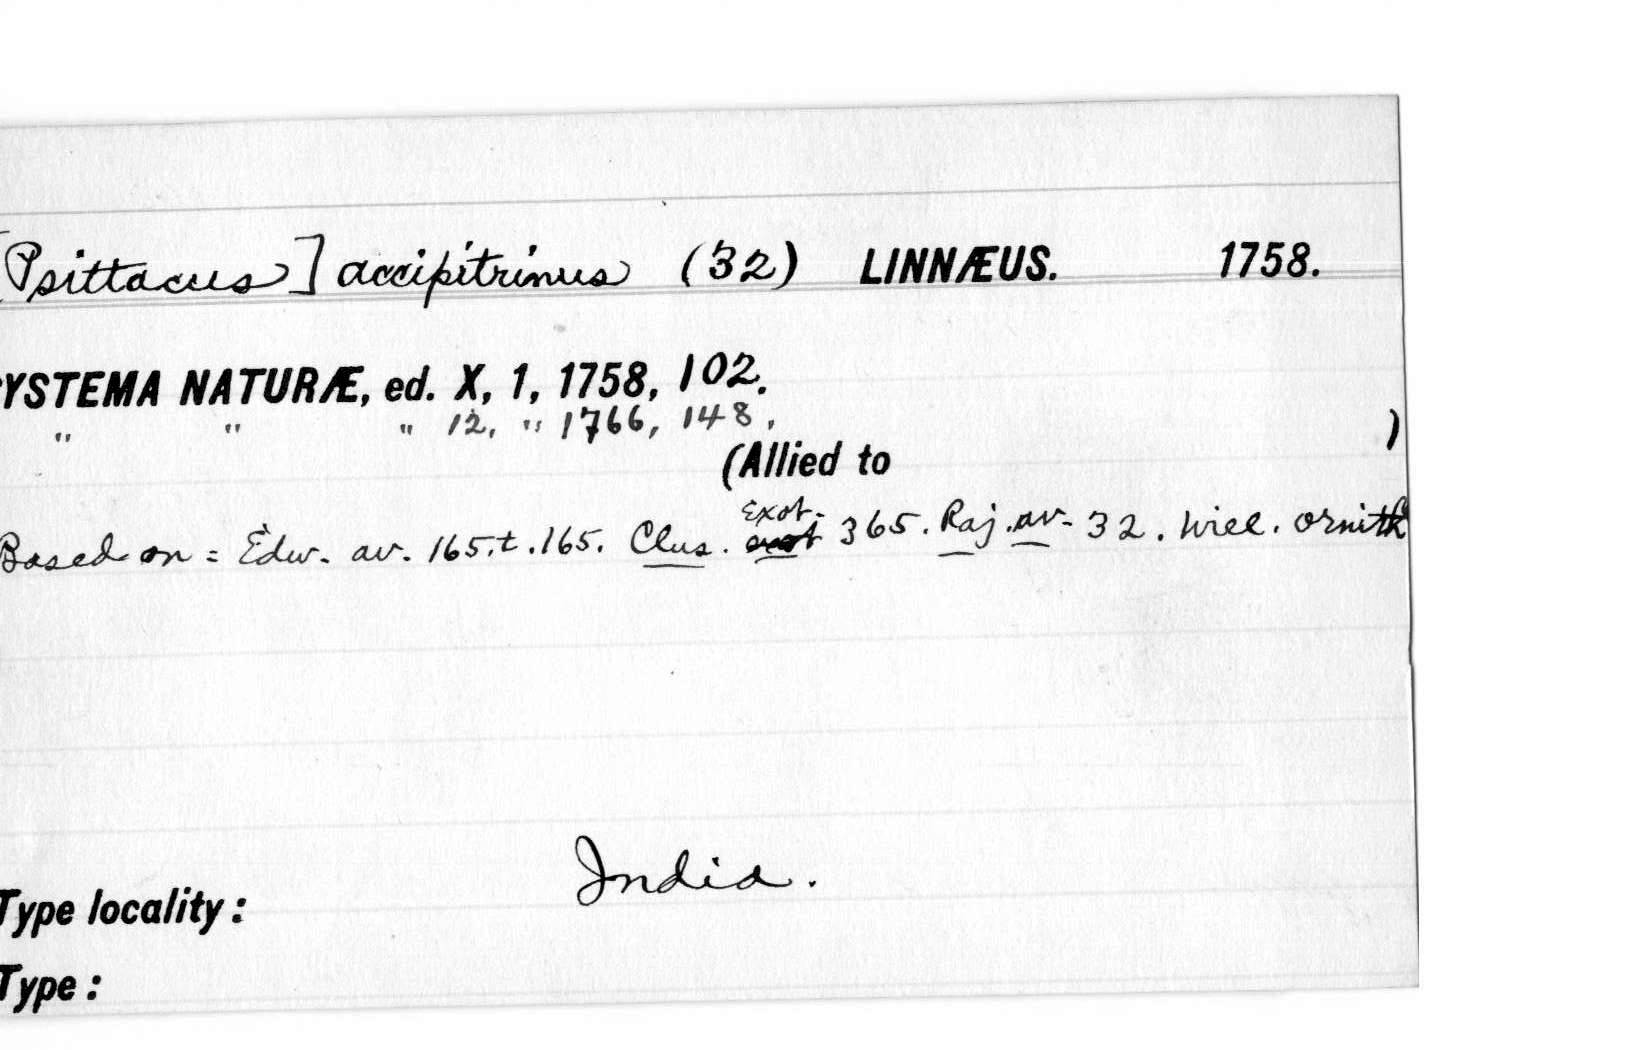 [Psittacus] accipitrinus (32) LINNÆUS. 1758.
YSTEMA NATURÆ, ed. X, 1, 1758, 102.
" " " 12, " 1766, 148,
(Allied to )
Based on = Edw. av. 165.t.165. Clus. Exot. 365. Raj. av. 32. Will. ornith
Type locality: India.
Type: